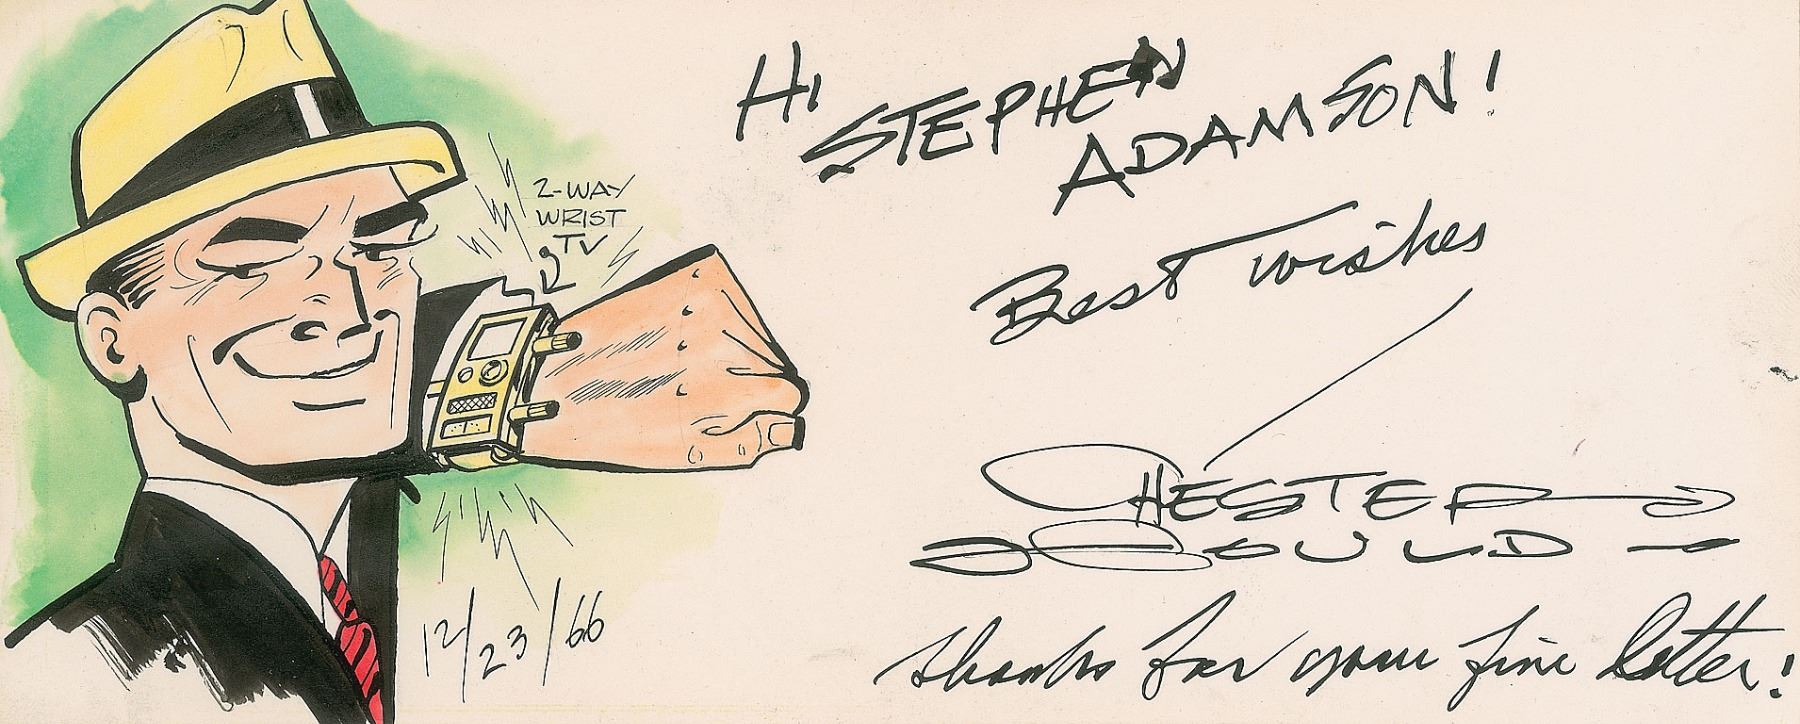 2-WAY
WRIST
TV
12/23/66
HI
STEPHEN
ADAMSON!
Best wishes
CHESTER
GOULD
thanks for your fine letter!